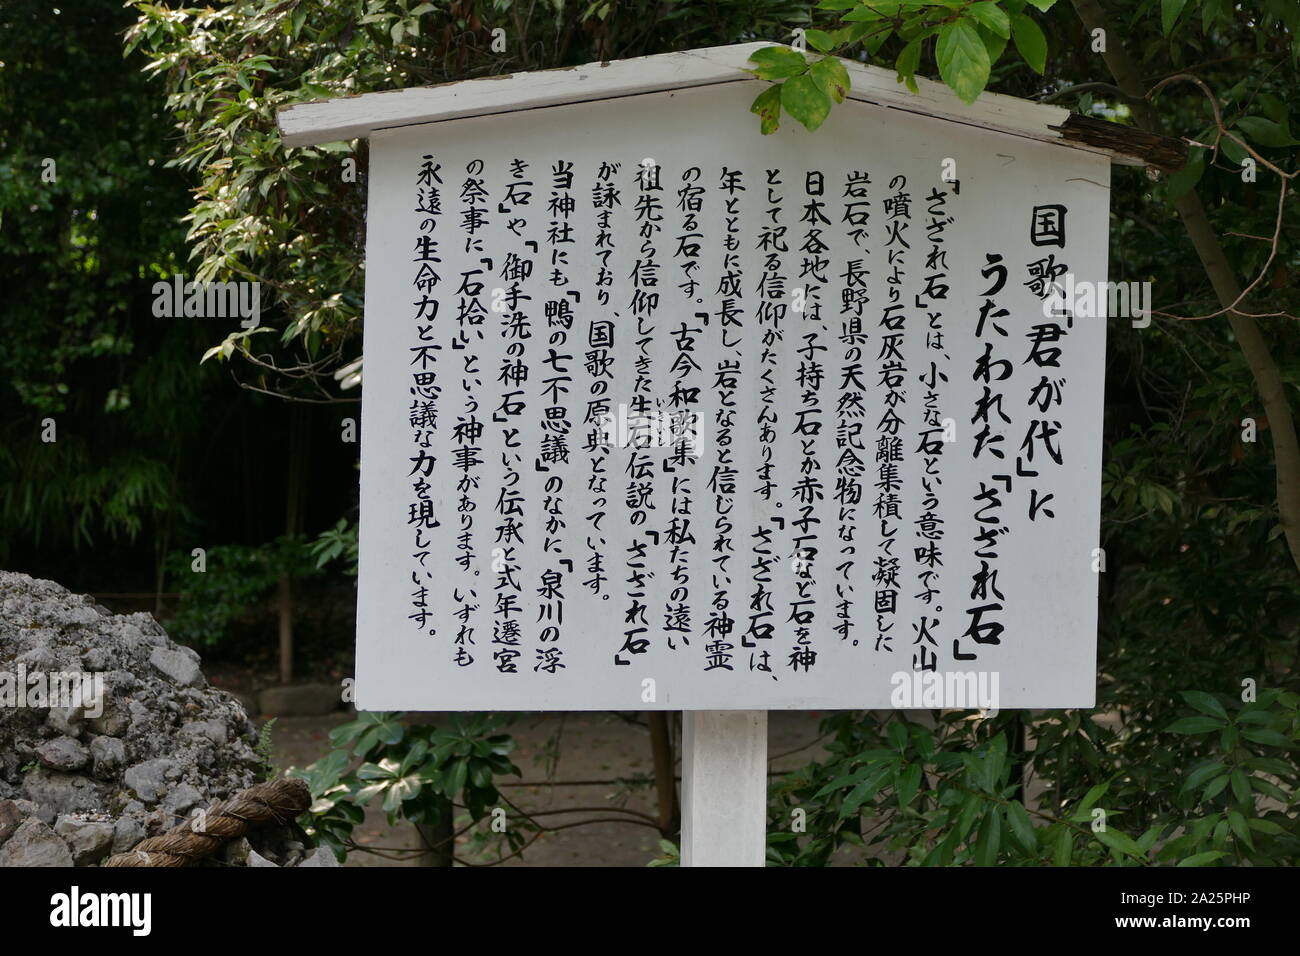 国歌「君が代」に
うたわれた「さざれ石」
「さざれ石」とは、小さな石という意味です。火山
の噴火により石灰岩が分離集積して凝固した
岩石で、長野県の天然記念物になっています。
日本各地には、子持ち石とか赤子石など石を神
として祀る信仰がたくさんあります。「さざれ石」は、
年とともに成長し、岩となると信じられている神霊
の宿る石です。「古今和歌集」には私たちの遠い
祖先から信仰してきた生石伝説の「さざれ石」
いきいし
が詠まれており、国歌の原典となっています。
当神社にも「鴨の七不思議」のなかに「泉川の浮
き石」や「御手洗の神石」という伝承と式年遷宮
の祭事に「石拾い」という神事があります。いずれも
永遠の生命力と不思議な力を現しています。
alamy
Image ID: A225PHP
www.alamy.com